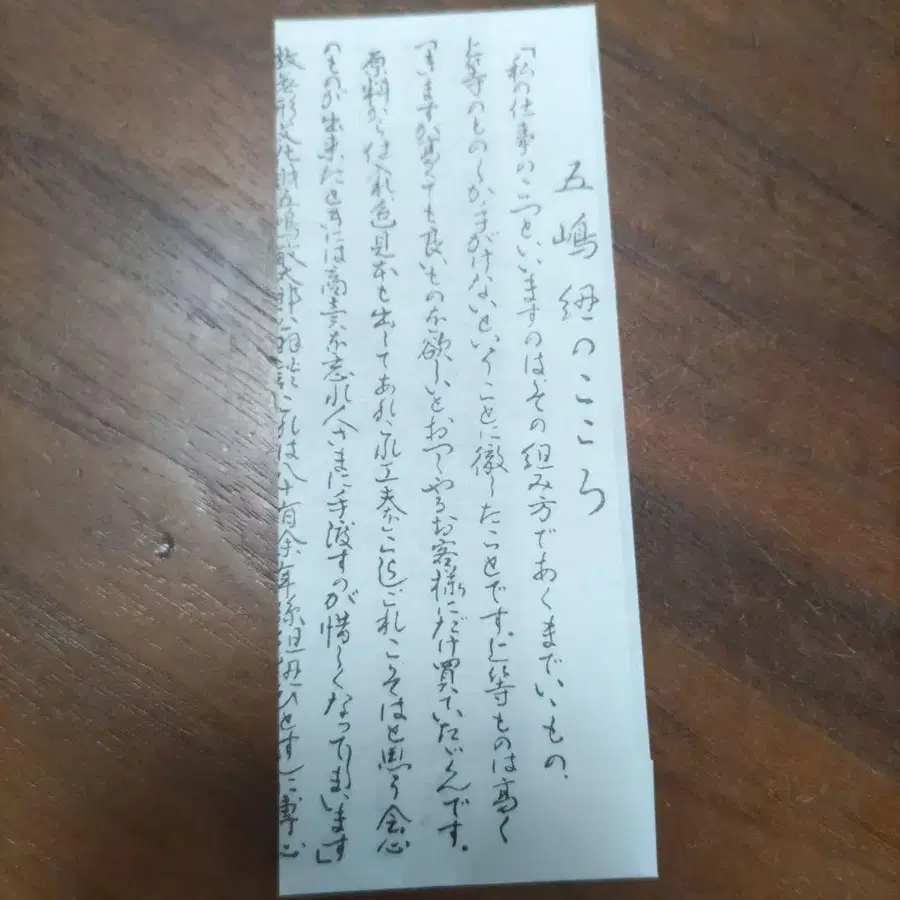 五嶋紐のこころ
「私の仕事のこつといいますのは、その組み方であくまでいいもの、
上等のものしか手がけないということに徹したことです。上等ものは高く
つきますが高くても良いものを欲しいとおっしゃるお客様にだけ買っていただくんです。
原料から仕入れ色見本も出してあれこれ工夫をこらしこれこそはと思う会心
のものが出来たときには商売を忘れ人さまに手渡すのが惜しくなってしまいます」
無形文化財五嶋敏太郎 これは八十有余年 組紐ひとすじに専心